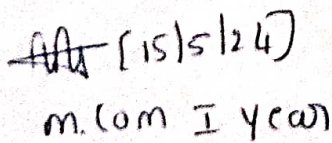 [15/5/24]
M. Com I year